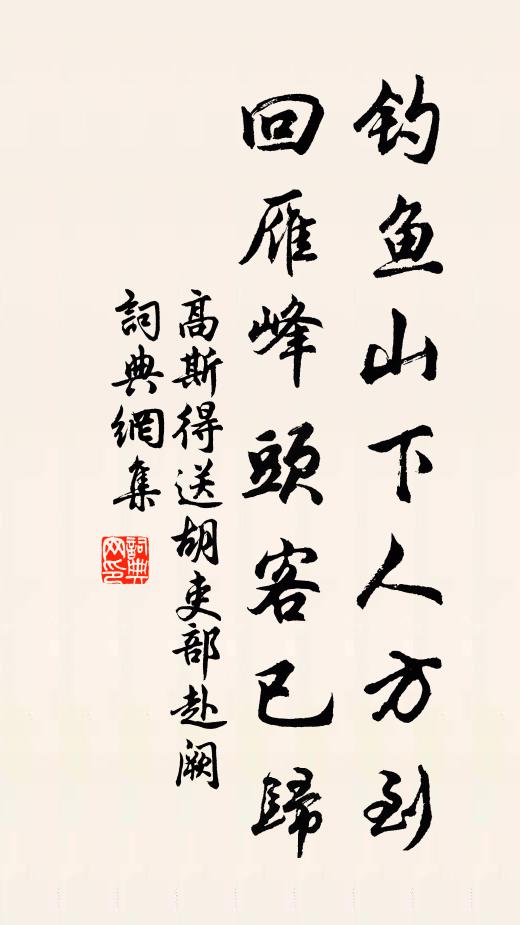 钓鱼山下人方到
回雁峰頭客已歸
高斯得送胡吏部赴阙
詞典網集
詞典
网印